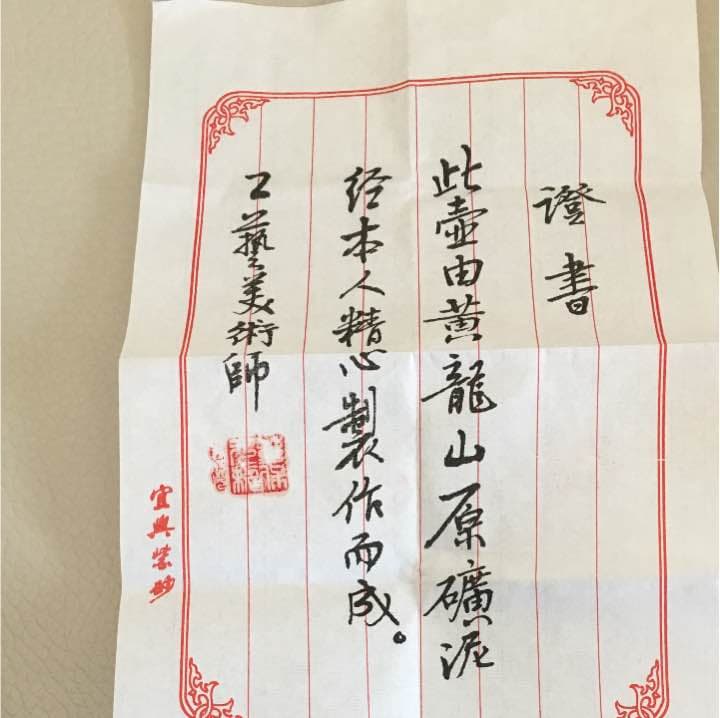 證書
此壺由黃龍山原礦泥
经本人精心製作而成。
工藝美術師
宜興紫砂